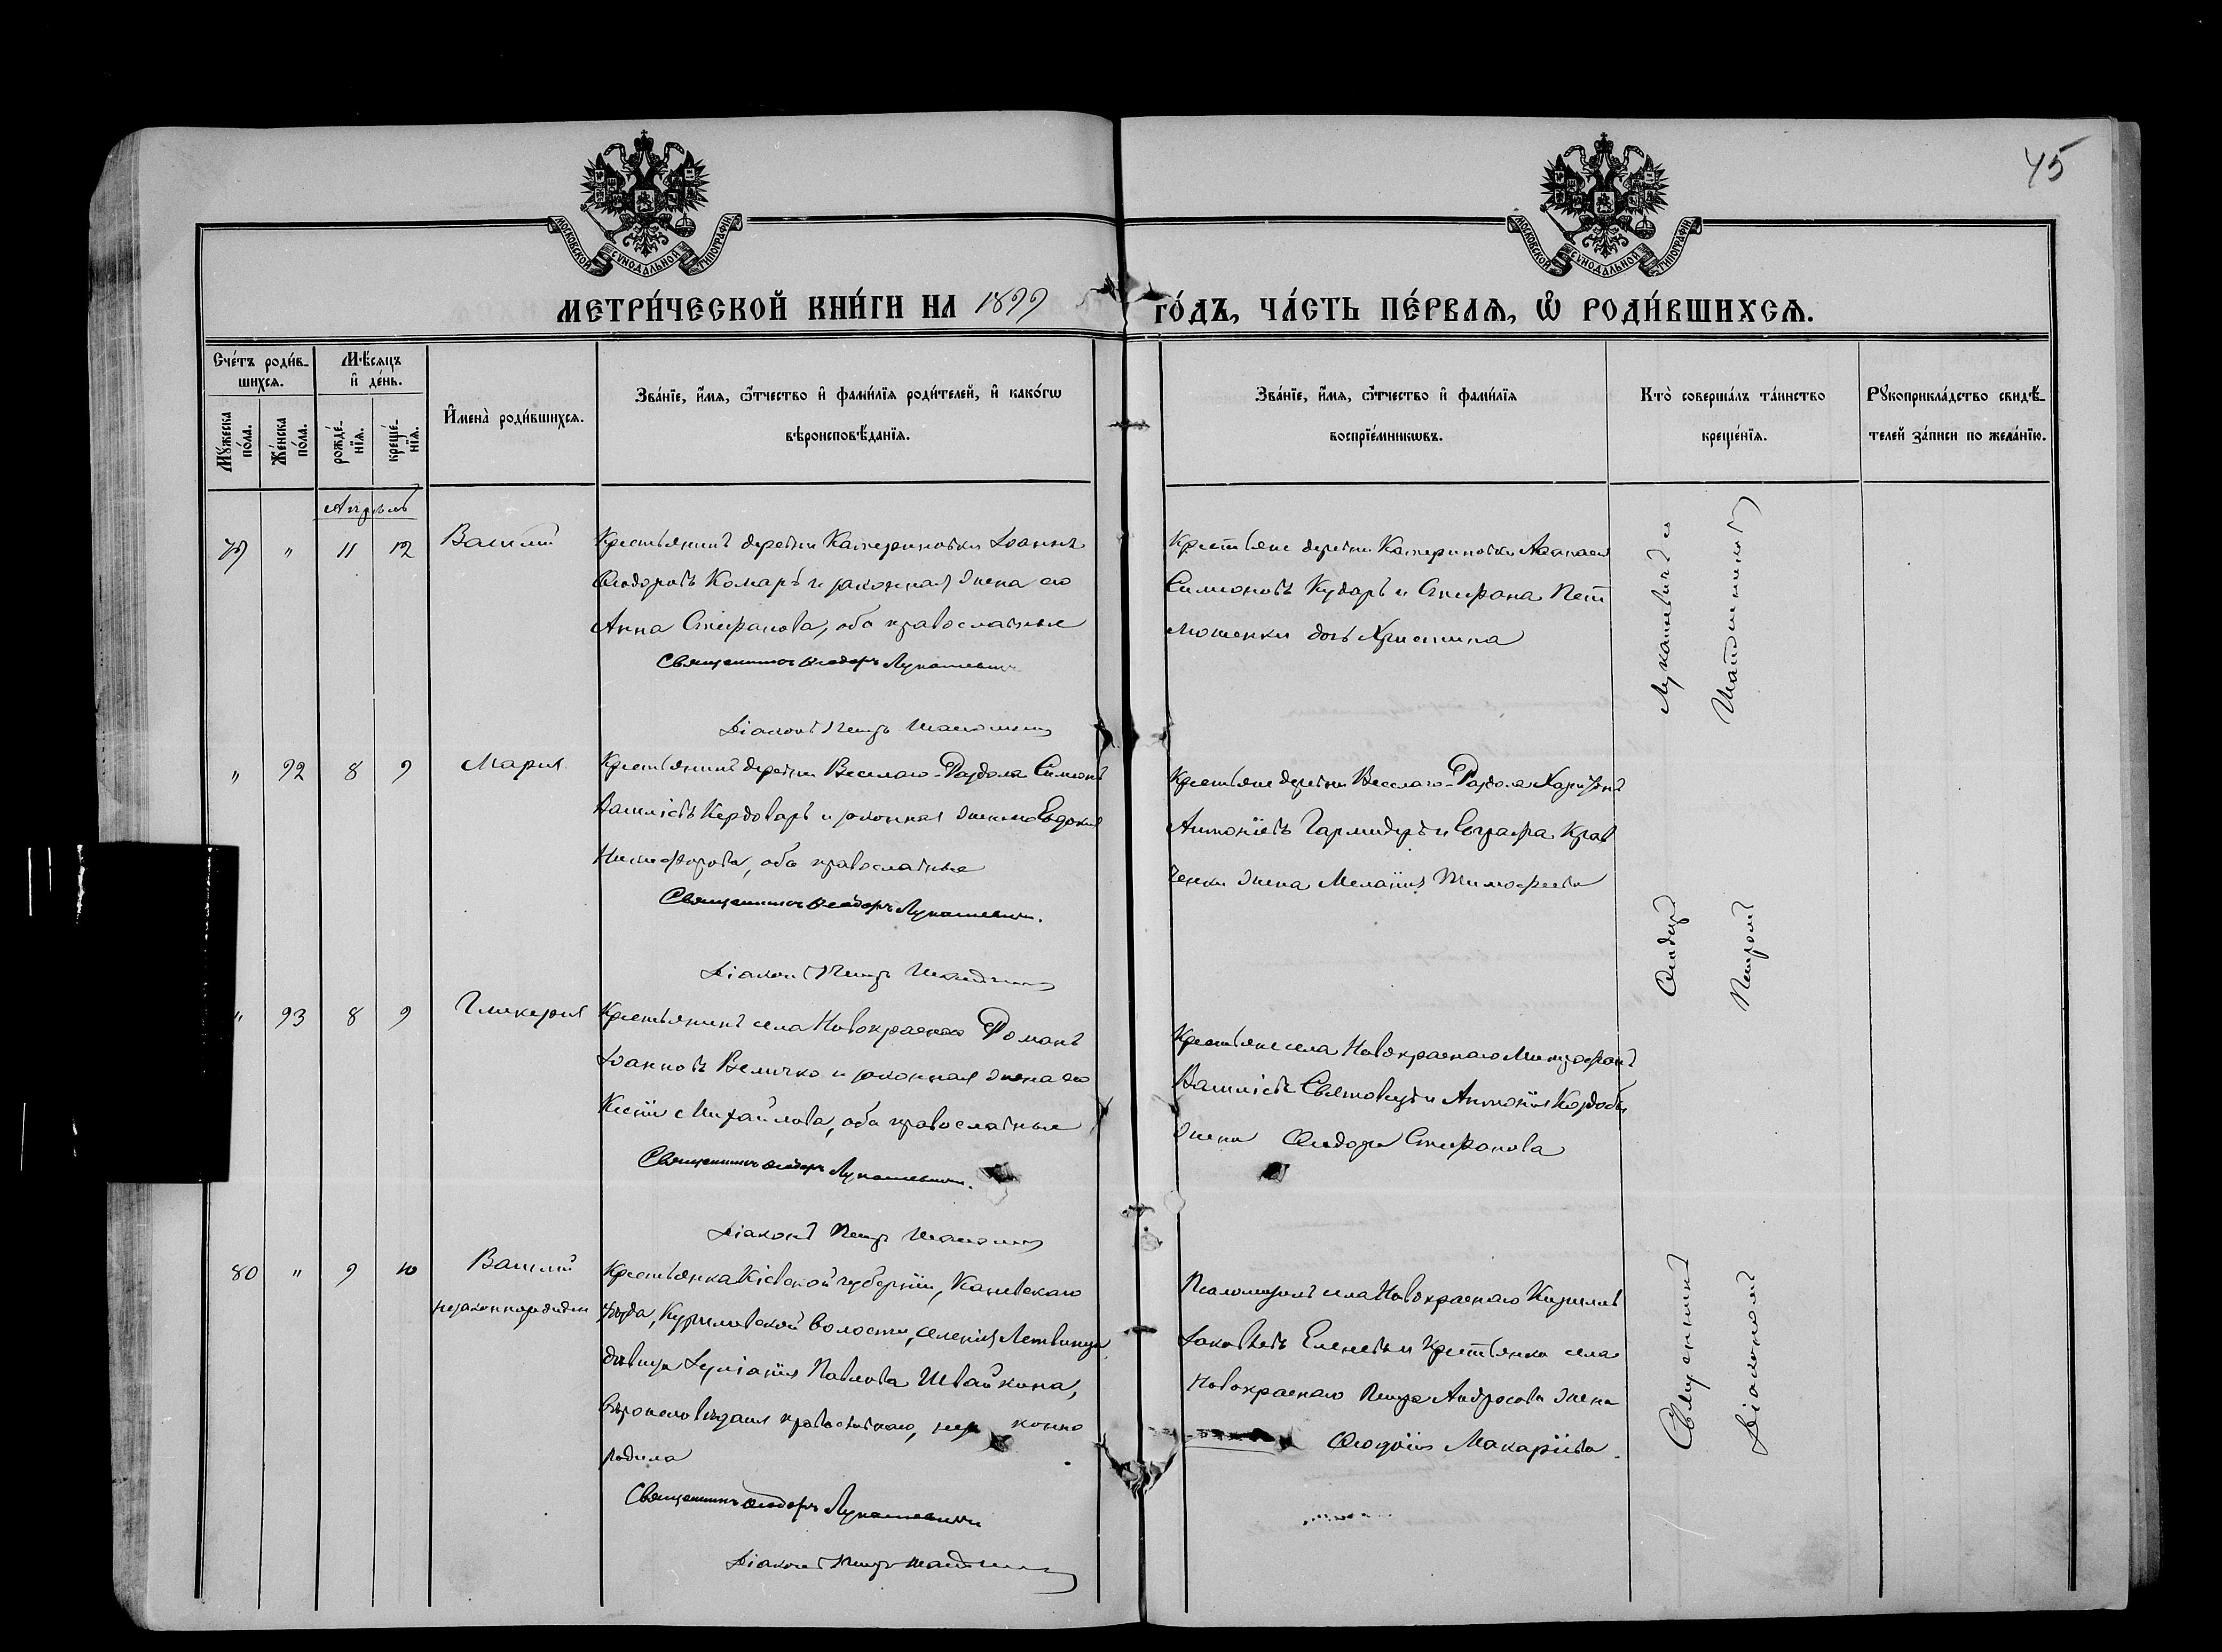 45
МОСКОВСКОЙ СУНОДАЛЬНОЙ ТИПОГРАФІИ
МОСКОВСКОЙ СУНОДАЛЬНОЙ ТИПОГРАФІИ
МЕТРИ́ЧЕСКОЙ КНИ́ГИ НА 1899 ГО́ДЪ, ЧА́СТЬ ПЕ́РВАѦ, Ѽ РОДИ́ВШИХСѦ.
Сче́тъ роди́вшихсѧ.
Мꙋ́жеска по́ла.
Же́нска по́ла.
Мѣ́сѧцъ и҆ де́нь.
рожде́нїѧ.
креще́нїѧ.
И҆мена̀ роди́вшихсѧ.
Зва́нїе, и҆́мѧ, ѻ҆́тчество и҆ фами́лїѧ роди́телей, и҆ како́гѡ
вѣроисповѣ́данїѧ.
Зва́нїе, и҆́мѧ, ѻ҆́тчество и҆ фами́лїѧ
воспрїе́мникѡвъ.
Кто̀ соверша́лъ та́инство
креще́нїѧ.
Рꙋкоприкла́дство свидѣ́-
телей за́писи по жела́нїю.
Апрѣль
79 " 11 12 Василій
Крестьянинъ деревни Катериновки Іоаннъ
Ѳеодоровъ Комаръ и законная жена его
Анна Стефанова, оба православные
Священникъ Ѳеодоръ Лукашевичъ
Діаконъ Петръ
Крестьяне деревни Катериновки Аѳанасій
Симеоновъ Кударъ и Стефана Пет
мошенки дочь Христина
" 92 8 9 Марія
Крестьянинъ деревни Веселаго-Раздола Симеонъ
Василіевъ Кердоваръ и законная жена его Евдокія
Никифорова, оба православные
Священникъ Ѳеодоръ Лукашевичъ.
Діаконъ Петръ
Крестьяне деревни Веселаго-Раздола Харитонъ
Антоніевъ и Евграфа Крав
ченки жена Меланія Тимофеева
" 93 8 9 Гликерія
Крестьянинъ села Новокраснаго Романъ
Іоанновъ Величко и законная жена его
Ксенія Михайлова, оба православные
Священникъ Ѳеодоръ Лукашевичъ.
Діаконъ Петръ
Крестьяне села Новокраснаго Митрофанъ
Василіевъ и Антонія Кордобы
жена Ѳеодора Стефанова
80 " 9 10 Василій
незаконнорожден
Крестьянка Кіевской губерніи, Каневскаго
уѣзда, Куриловской волости, селенія Литвинца
дѣвица Іуліанія Павлова Швайкина,
вѣроисповѣданія православнаго, нез конно
родила
Священникъ Ѳеодоръ Лукашевичъ
Діаконъ Петръ
Псаломщикъ села Новокраснаго Кириллъ
Іаковлевъ Еленевъ и крестьянка села
Новокраснаго Петра Андросова жена
Ѳеодосія Макаріева.
Священникъ Ѳеодоръ Лукашевичъ съ
Діакономъ Петромъ